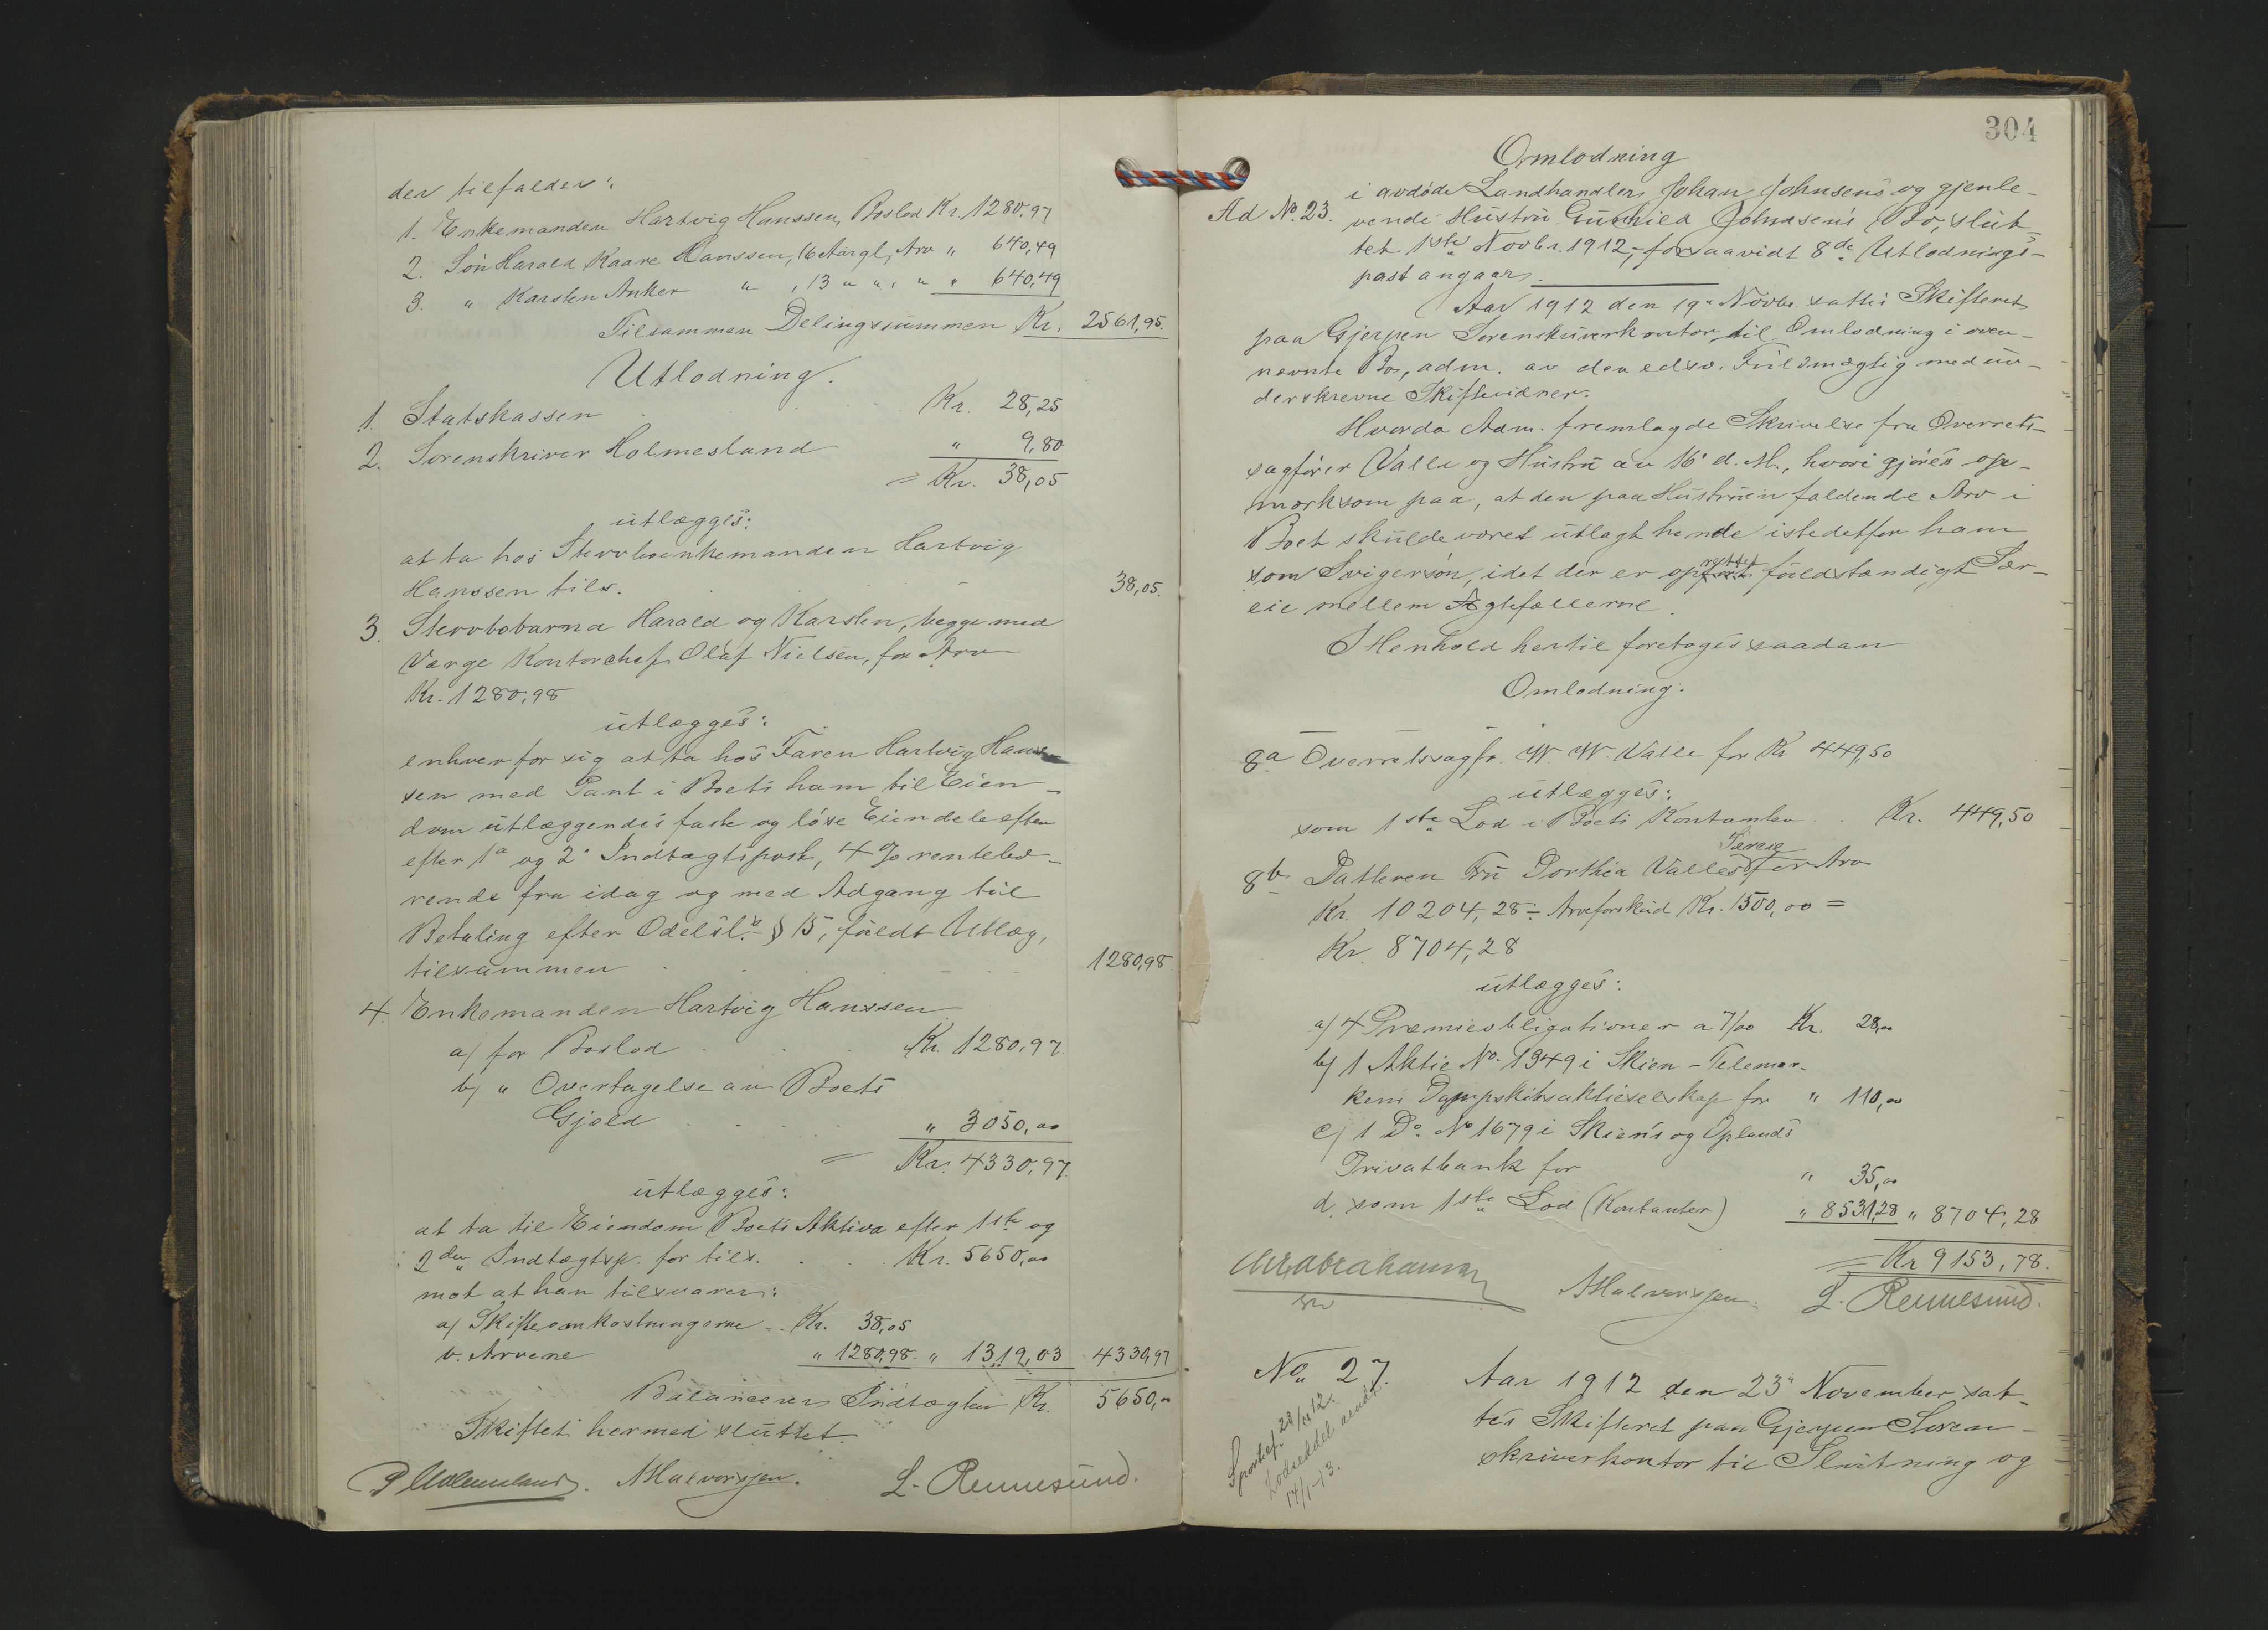 der tilfalder:
1. Enkemanden Hartvig Hanssen, Boslod Kr. 1280,97
2. Søn Harald Kaare Hanssen, 16 Aar gl, Arv " 640,49
3. " Karsten Anker " , 13 " " , " " 640,49
Tilsammen Delingssummen Kr. 2561,95.
Utlodning.
1. Statskassen Kr. 28,25
2. Sorenskriver Holmesland " 9,80
= Kr. 38,05
utlægges:
at ta hos Stervboenkemanden Hartvig
Hanssen tils. 38,05.
3. Stervbobarna Harald og Karsten, begge med
Værge Kontorchef Olaf Nielsen, for Arv
Kr. 1280,98
utlægges:
enhver for sig at ta hos Faren Hartvig Hans-
sen med Pant i Boets ham til Eien-
dom utlæggendes faste og løse Eiendele efter
efter 1ª og 2ª Indtægtspost, 4 % rentebæ-
rende fra idag og med Adgang til
Betaling efter Odelsl.s § 15, fuldt Utlæg,
tilsammen 1280,98
4. Enkemanden Hartvig Hanssen
a) for Boslod Kr. 1280,97.
b) " Overtagelse av Boets
Gjæld " 3050,00
= Kr. 4330,97.
utlægges:
at ta til Eiendom Boets Aktiva efter 1ste og
2den Indtægtsp. for tils. Kr. 5650,00
mot at han tilsvarer:
a) Skifteomkostningerne Kr. 38,05
b. Arvene " 1280,98. " 1319,03 4330,97
Balancerer Indtægten Kr. 5650,00
Skiftet hermed sluttet.
Holmesland. Halvorsen. L. Rennesund.
304
Omlodning
Ad No. 23. i avdøde Landhandler Johan Johnsens og gjenle-
vende Hustru Gunhild Johnsens Bo, slut-
tet 1ste Novbr. 1912, forsaavidt 8de Utlodnings-
post angaar.
Aar 1912 den 19. Novbr sattes Skifteret
paa Gjerpen Sorenskriverkontor til Omlodning i oven-
nævnte Bo, adm. av den edsv. Fuldmægtig med un-
derskrevne Skiftevidner.
Hvorda Adm. fremlagde Skrivelse fra Overrets-
sagfører Valle og Hustru av 16' d. M., hvori gjøres op-
mærksom paa, at den paa Hustruen faldende Arv i
Boet skulde været utlagt hende istedetfor ham
som Svigersøn, idet der er oprettet fuldstændigt Sær-
eie mellem Ægtefællerne.
I Henhold hertil foretoges saadan
Omlodning:
8a Overretssagfr. W. W. Valle for Kr 449,50
utlægges:
som 1ste Lod i Boets Kontanter Kr. 449,50
8b Datteren Fru Dorthea Valles Særeie for Arv
Kr. 10204,28 ÷ Arveforskud Kr. 1500,00 =
Kr. 8704,28
utlægges:
a) 4 Præmieobligationer a 7/00 Kr. 28,00
b) 1 Aktie No. 1349 i Skien-Telemar-
kens Dampskibsaktieselskap for " 110,00
c) 1 Do. No 1679 i Skiens og Oplands
Privatbank for " 35,00
d. som 1ste Lod (Kontanter) " 8531,28 " 8704,28
= Kr 9153,78.
Chr. Abrahamsen Halvorsen. L. Rennesund.
No. 27. Aar 1912 den 23' November sat-
Sportlef. 28/11 12.
Lodseddel sendt
14/1-13.
tes Skifteret paa Gjerpen Soren-
skriverkontor til Slutning og